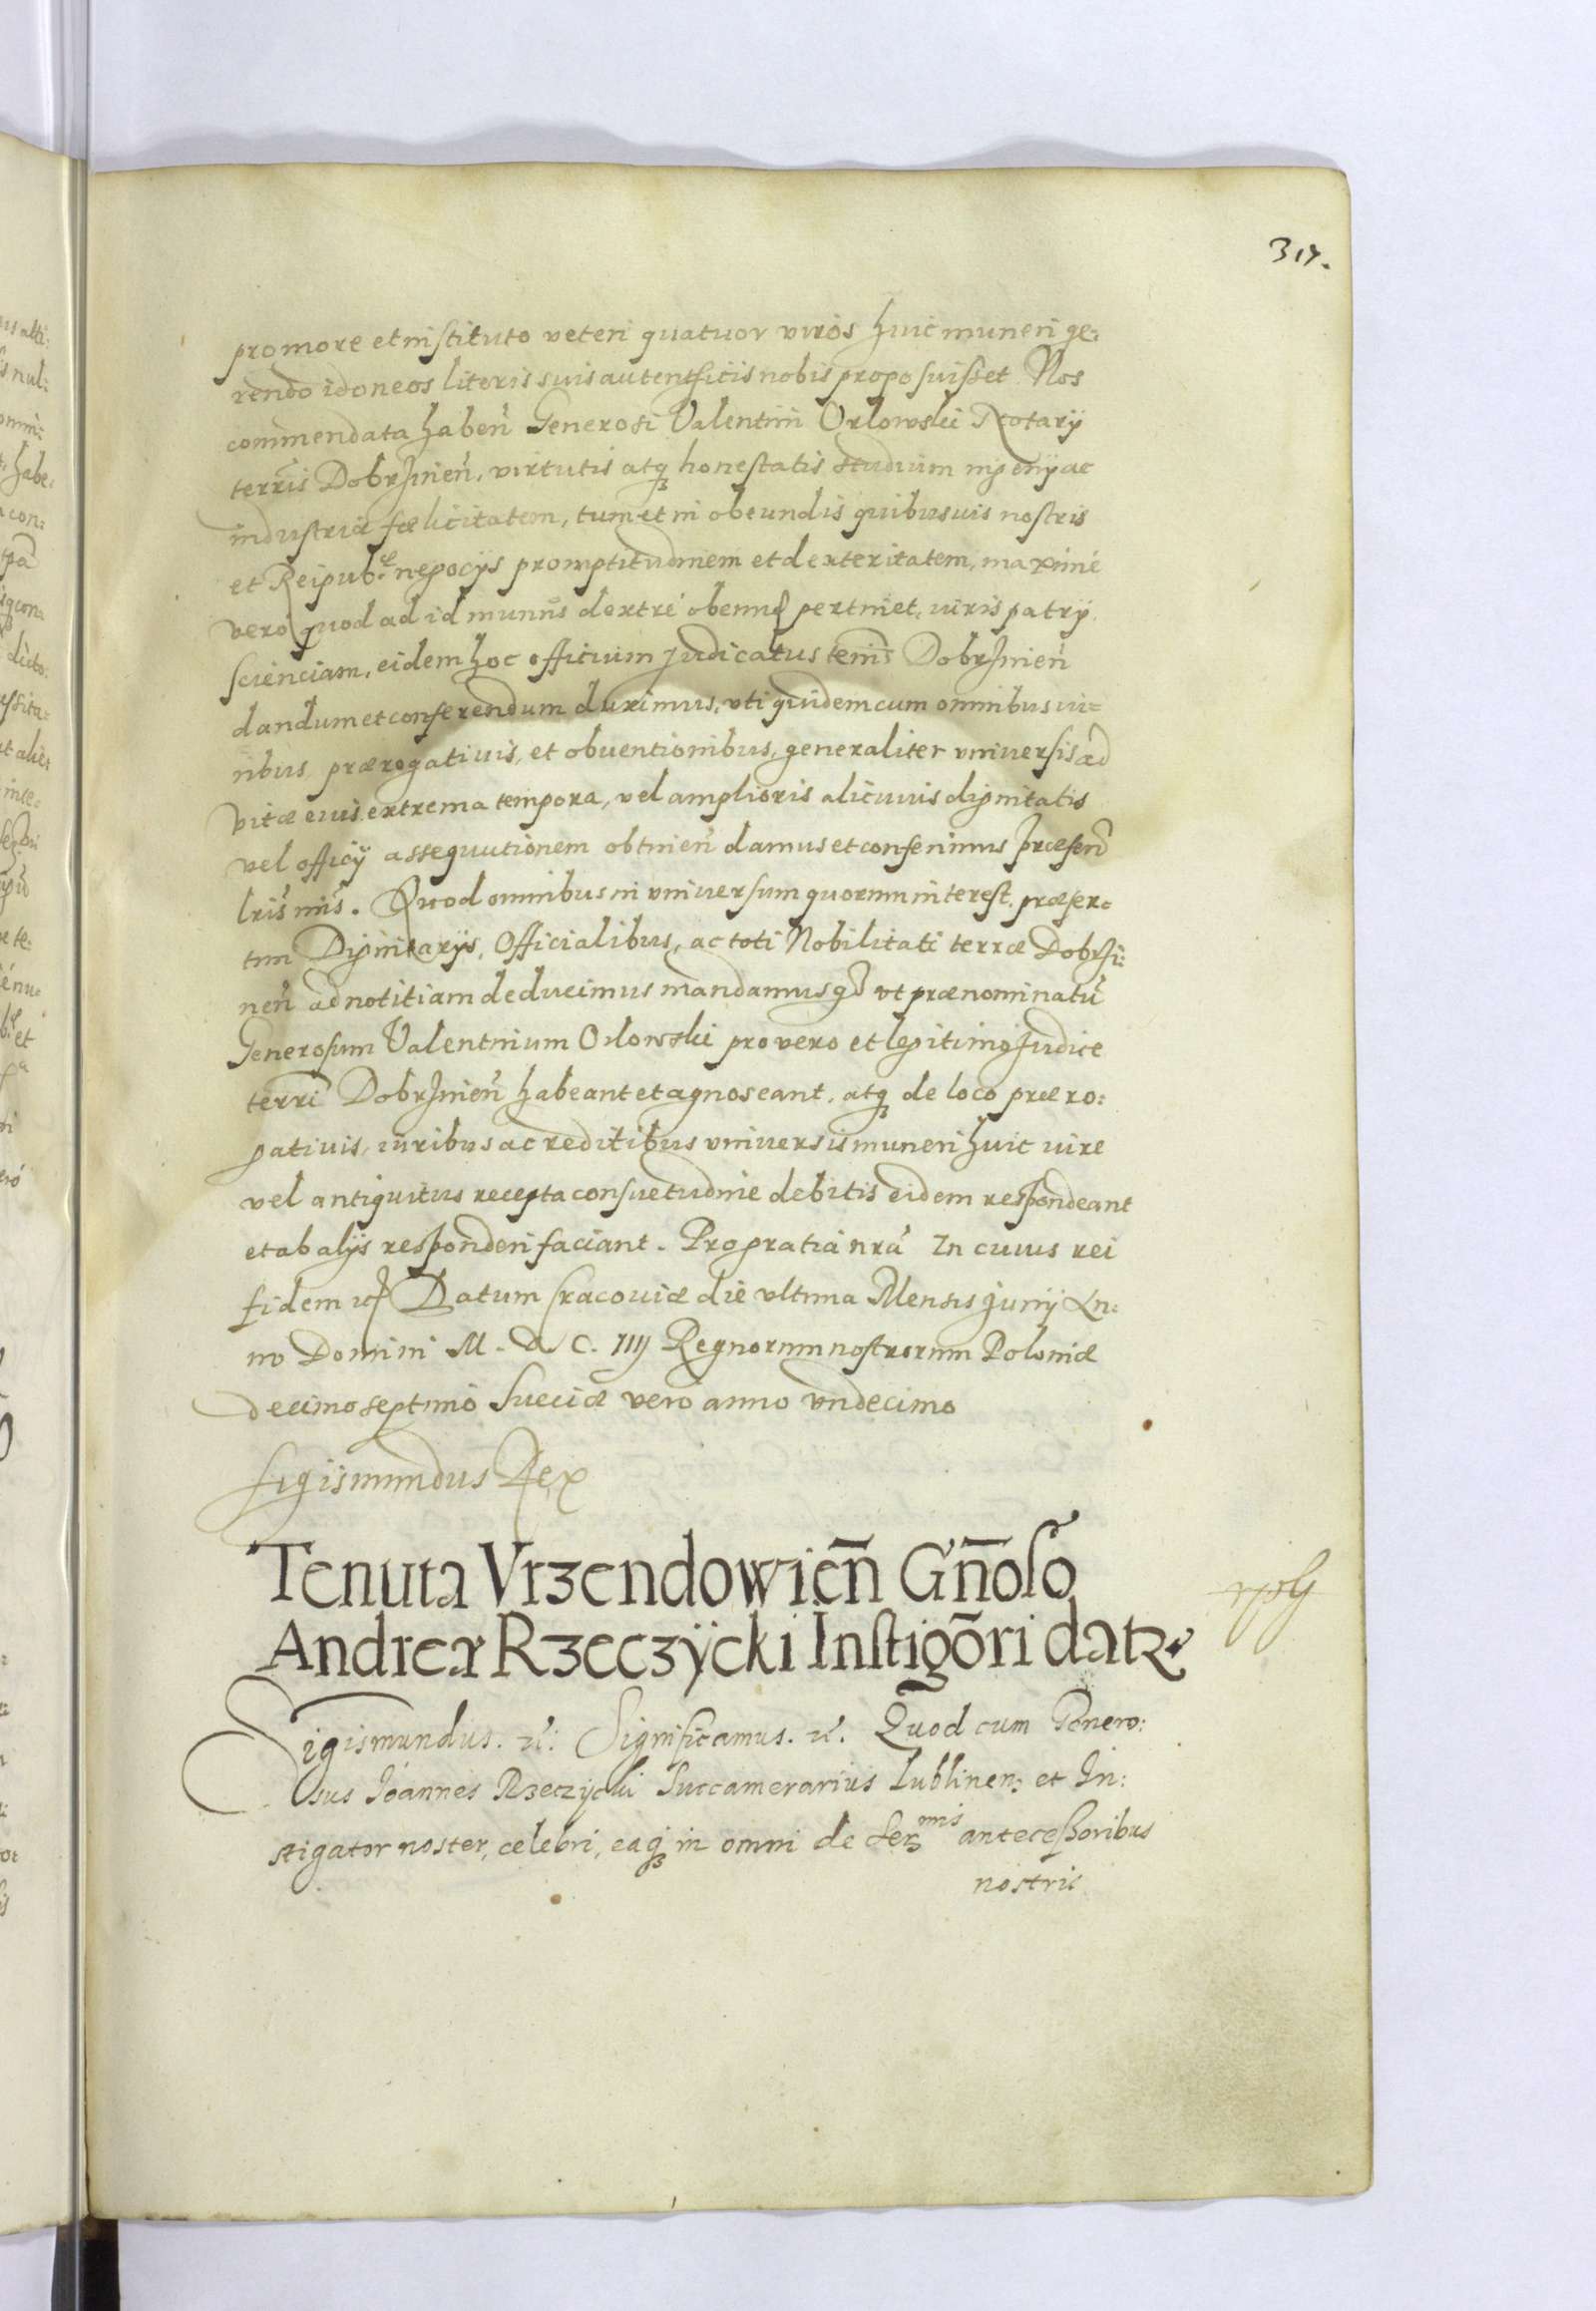 317.
pro more et instituto veteri quatuor viros huic muneri ge:
rendo idoneos literis suis autenthicis nobis proposuisset. Nos
commendata haben̄ Generosi Valentini Orlowski Notarÿ
terrīs Dobrzinen̄, virtutis atq̨ honestatis studium ingenÿ ac
industriæ fœlicitatem, tum et in obeundis quibusuis nostris
et Reipub.e negocÿs promptitudinem et dexteritatem, maximè
vero quod ad id munus dextrè obeund pertinet, iuris patrÿ
scienciam, eidem hoc officium Judicatus Dobrzinen̄
dandum et conferendum duximus, vti quidem cum omnibus iu=
ribus prærogatiuis, et obuentionibus, generaliter vniuersis ad
vitæ eius extrema tempora, vel amplioris alicuius dignitatis
vel officÿ assequutionem obtinen̄ damus et conferimus præsen̄
lrīs nr̄is. Quod omnibus in vniuersum quorum interest, præser=
tim Dignitarÿs, Officialibus, ac toti Nobilitati terræ Dobrzi:
nen̄ ad notitiam deducimus mandamusq̨ vt prænominatū
Generosum Valentinium Orlowski pro vero et legitimo Judice
terrī Dobrzinen̄ habeant et agnoscant, atq̨ de loco præro:
gatiuis, iuribus ac reditibus vniuersis muneri huic iure
vel antiquitus recepta consuetudine debitis eidem respondeant
et ab alÿs responderi faciant. Pro gratia nrā In cuius rei
fidem etc Datum Cracouiæ die vltima Mensis Junÿ An:
no Domini M. D. C. IIIJ Regnorum nostrorum Poloniæ
decimo septimo Sueciæ vero anno vndecimo
Sigismundus Rex
Tenuta Vrzendowien̄ Gn̄oso
Andreæ Rzeczÿcki Instigōri datr
Sigismundus. etc: Significamus. etc. Quod cum Genero:
sus Joannes Rzeczycki Succamerarius Lublinen: et In:
stigator noster, celebri, eaq̨ in omni de Ser.mis antecessoribus
nostris